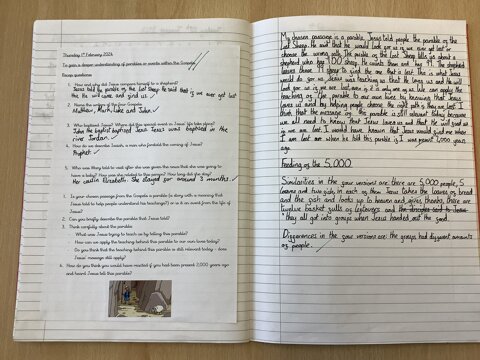 Thursday 1st February 2024
To gain a deeper understanding of parables or events within the Gospels.
Recap questions:
1. How and why did Jesus compare himself to a shepherd?
Jesus told the parable of the Lost Sheep. He said that
he He will come and find us if we ever get lost
2. Name the writers of the four Gospels.
Matthew, Mark Luke and John.
3. Who baptised Jesus? Where did this special event in Jesus' life take place?
John the baptist baptised Jesus. Jesus was baptised in the
river Jordan.
4. How do we describe Isaiah, a man who foretold the coming of Jesus?
Prophet
5. Who was Mary told to visit after she was given the news that she was going to
have a baby? How was she related to this person? How long did she stay?
Her cousin Elizabeth. She stayed for around 3 months.
1. Is your chosen passage from the Gospels a parable (a story with a meaning that
Jesus told to help people understand his teachings?) or is it an event from the life of
Jesus?
2. Can you briefly describe the parable that Jesus told?
3. Think carefully about the parable:
- What was Jesus trying to teach us by telling this parable?
- How can we apply the teaching behind this parable to our own lives today?
- Do you think that the teaching behind this parable is still relevant today - does
Jesus' message still apply?
4. How do you think you would have reacted if you had been present 2,000 years ago
and heard Jesus tell this parable?
My chosen passage is a parable. Jesus told people the parable of the
Lost Sheep. He said that he would look for us if we ever get lost or
choose the wrong path. The parable of the Lost Sheep tells us about a
shepherd who has 100 sheep. He counts them and has 99. The shepherd
leaves those 99 sheep to find the one that is lost. This is what Jesus
would do for us. Jesus was teaching us that He loves us and that He will
look for us if we are lost even if it is only one of us. We can apply the
teaching of the parable to our own lives by knowing that Jesus
loves us and by helping people choose the right path if they are lost. I
think that the message of the parable is still relevant today because
we all need to know that Jesus loves us and that he will find us
if we are lost. I would have known that Jesus would find me when
I am lost when he told this parable if I was present 2,000 years
ago.
Feeding of the 5,000
Similarities in the four versions are: there are 5,000 people, 5
loaves and two fish, in each of them Jesus takes the loaves of bread
and the fish and looks up to heaven and gives thanks, there are
twelve basket fulls of leftovers and the disciples said to Jesus
they all got into groups when Jesus handed out the food.
Differences in the four versions are: the groups had different amounts
of people.